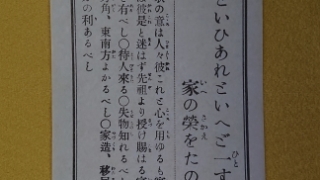 といひあれといへど一す
家の榮をたの
の意は人々彼これと心を用ゆるも
彼是と迷はず先祖より授け賜はる
有べし〇待人來る〇失物知れるべ
角、東南方よかるべし〇家造、移
の利あるべし